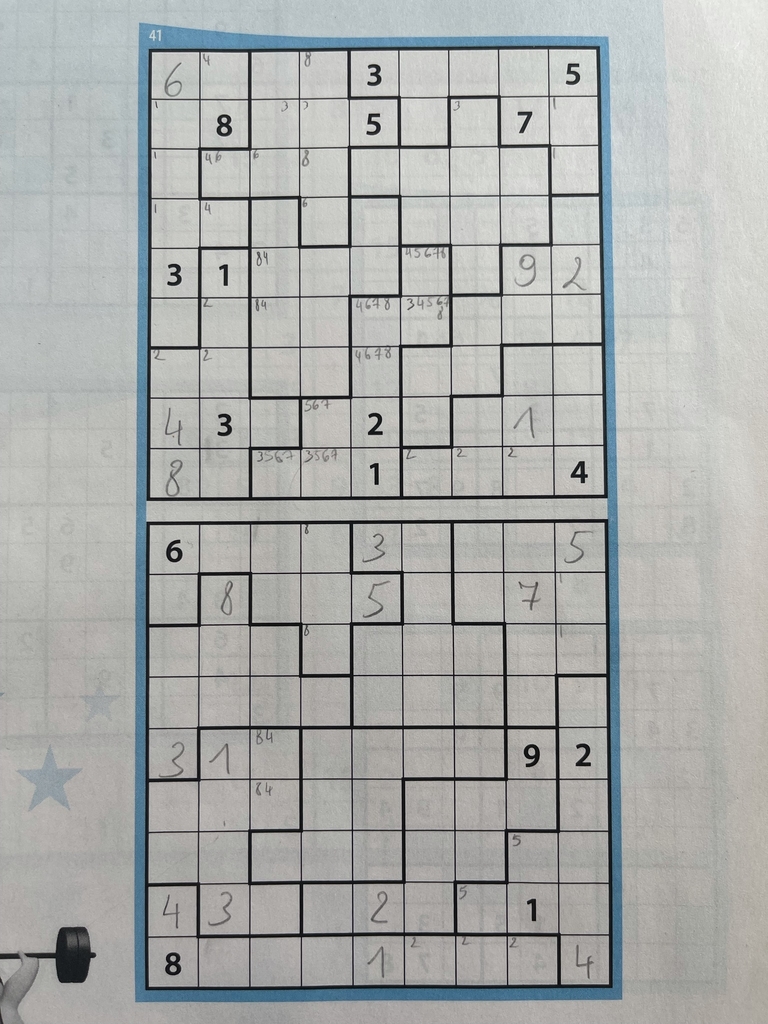 41
6 4 8 3 5
1 8 3 3 5 3 7 1
1 46 6 8 1
1 4 6
3 1 84 45678 9 2
2 84 4678 345678
2 2 4678
4 3 567 2 1
8 3567 3567 1 2 2 2 4
6 8 3 5
8 5 7 1
8 1
3 1 84 9 2
84
5
4 3 2 5 1
8 1 2 2 2 4